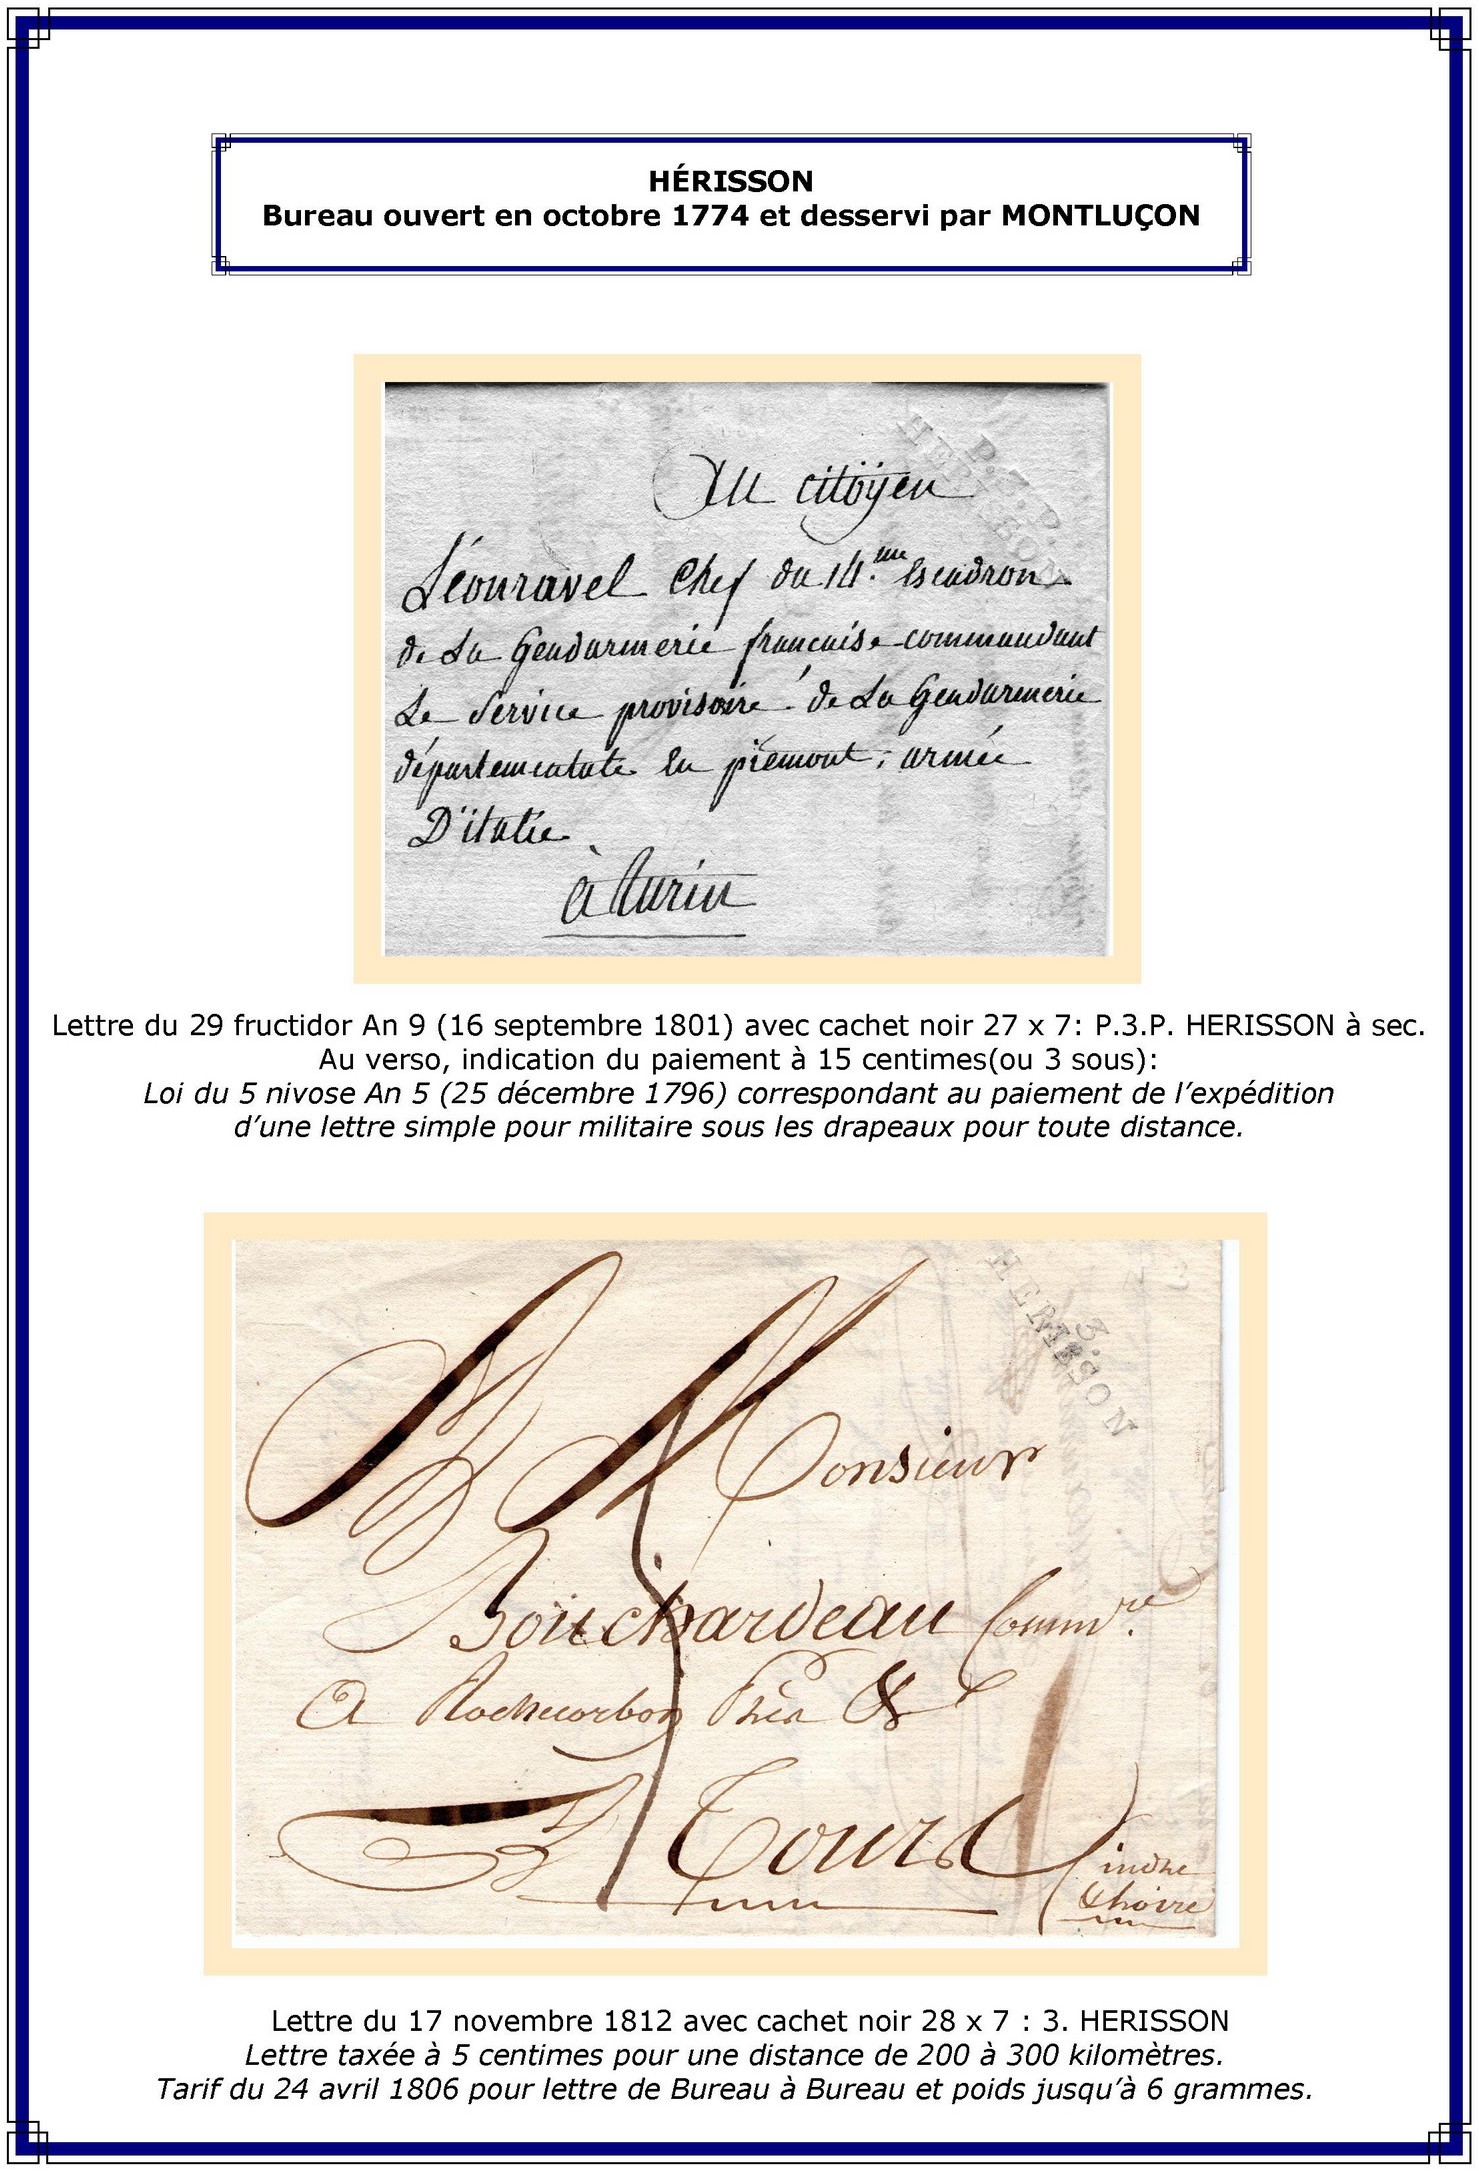 HÉRISSON
Bureau ouvert en octobre 1774 et desservi par MONTLUÇON
P.3.P.
HERISSON
Au citöÿen
Léouravel Chef du 14.me Escadron
de La Gendarmerie francaise commandant
Le Service provisoire de La Gendarmerie
départementale En piémont, armée
D'italie
à turin
Lettre du 29 fructidor An 9 (16 septembre 1801) avec cachet noir 27 x 7: P.3.P. HERISSON à sec.
Au verso, indication du paiement à 15 centimes(ou 3 sous):
Loi du 5 nivose An 5 (25 décembre 1796) correspondant au paiement de l’expédition
d’une lettre simple pour militaire sous les drapeaux pour toute distance.
3.
HERISSON
Monsieur
Bouchardeau Comm.re
A Rochecorbon Près
Tours
indre
& Loire
Lettre du 17 novembre 1812 avec cachet noir 28 x 7 : 3. HERISSON
Lettre taxée à 5 centimes pour une distance de 200 à 300 kilomètres.
Tarif du 24 avril 1806 pour lettre de Bureau à Bureau et poids jusqu’à 6 grammes.